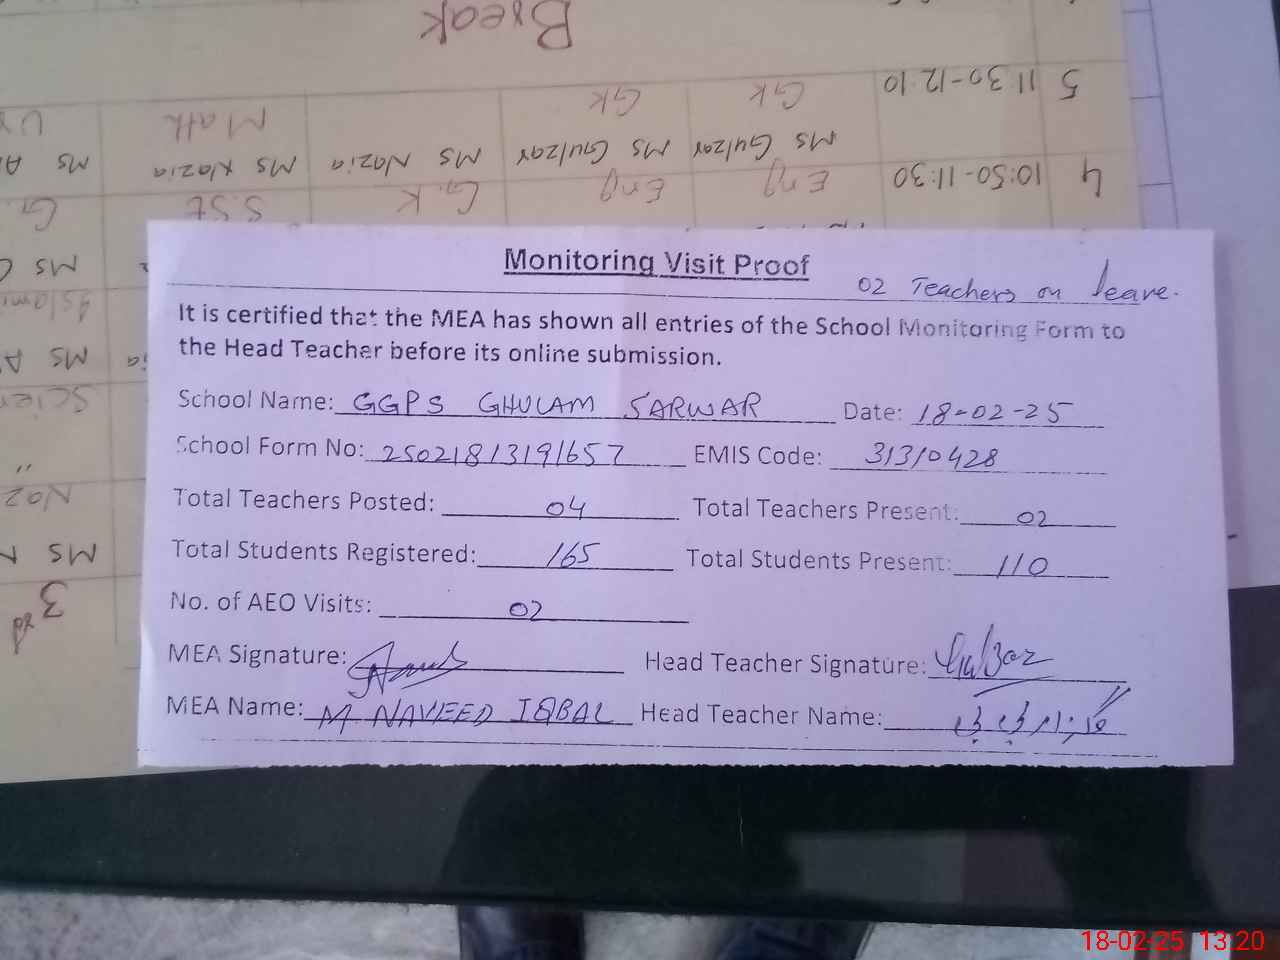 Break
5 11:30-12:10 GK GK Math
Ms Gulzar Ms Gulzar Ms Nazia Ms Nazia Ms
4 10:50-11:30 Eng Eng G.K S.St G.
Ms
Ms
Ms
3rd
Monitoring Visit Proof
02 Teachers on leave.
It is certified that the MEA has shown all entries of the School Monitoring Form to
the Head Teacher before its online submission.
School Name: GGPS GHULAM SARWAR Date: 18-02-25
School Form No: 25021813191657 EMIS Code: 31310428
Total Teachers Posted: 04 Total Teachers Present: 02
Total Students Registered: 165 Total Students Present: 110
No. of AEO Visits: 02
MEA Signature: Head Teacher Signature: Gulzar
MEA Name: M NAVEED IQBAL Head Teacher Name: گلزار بی بی
18-02-25 13:20